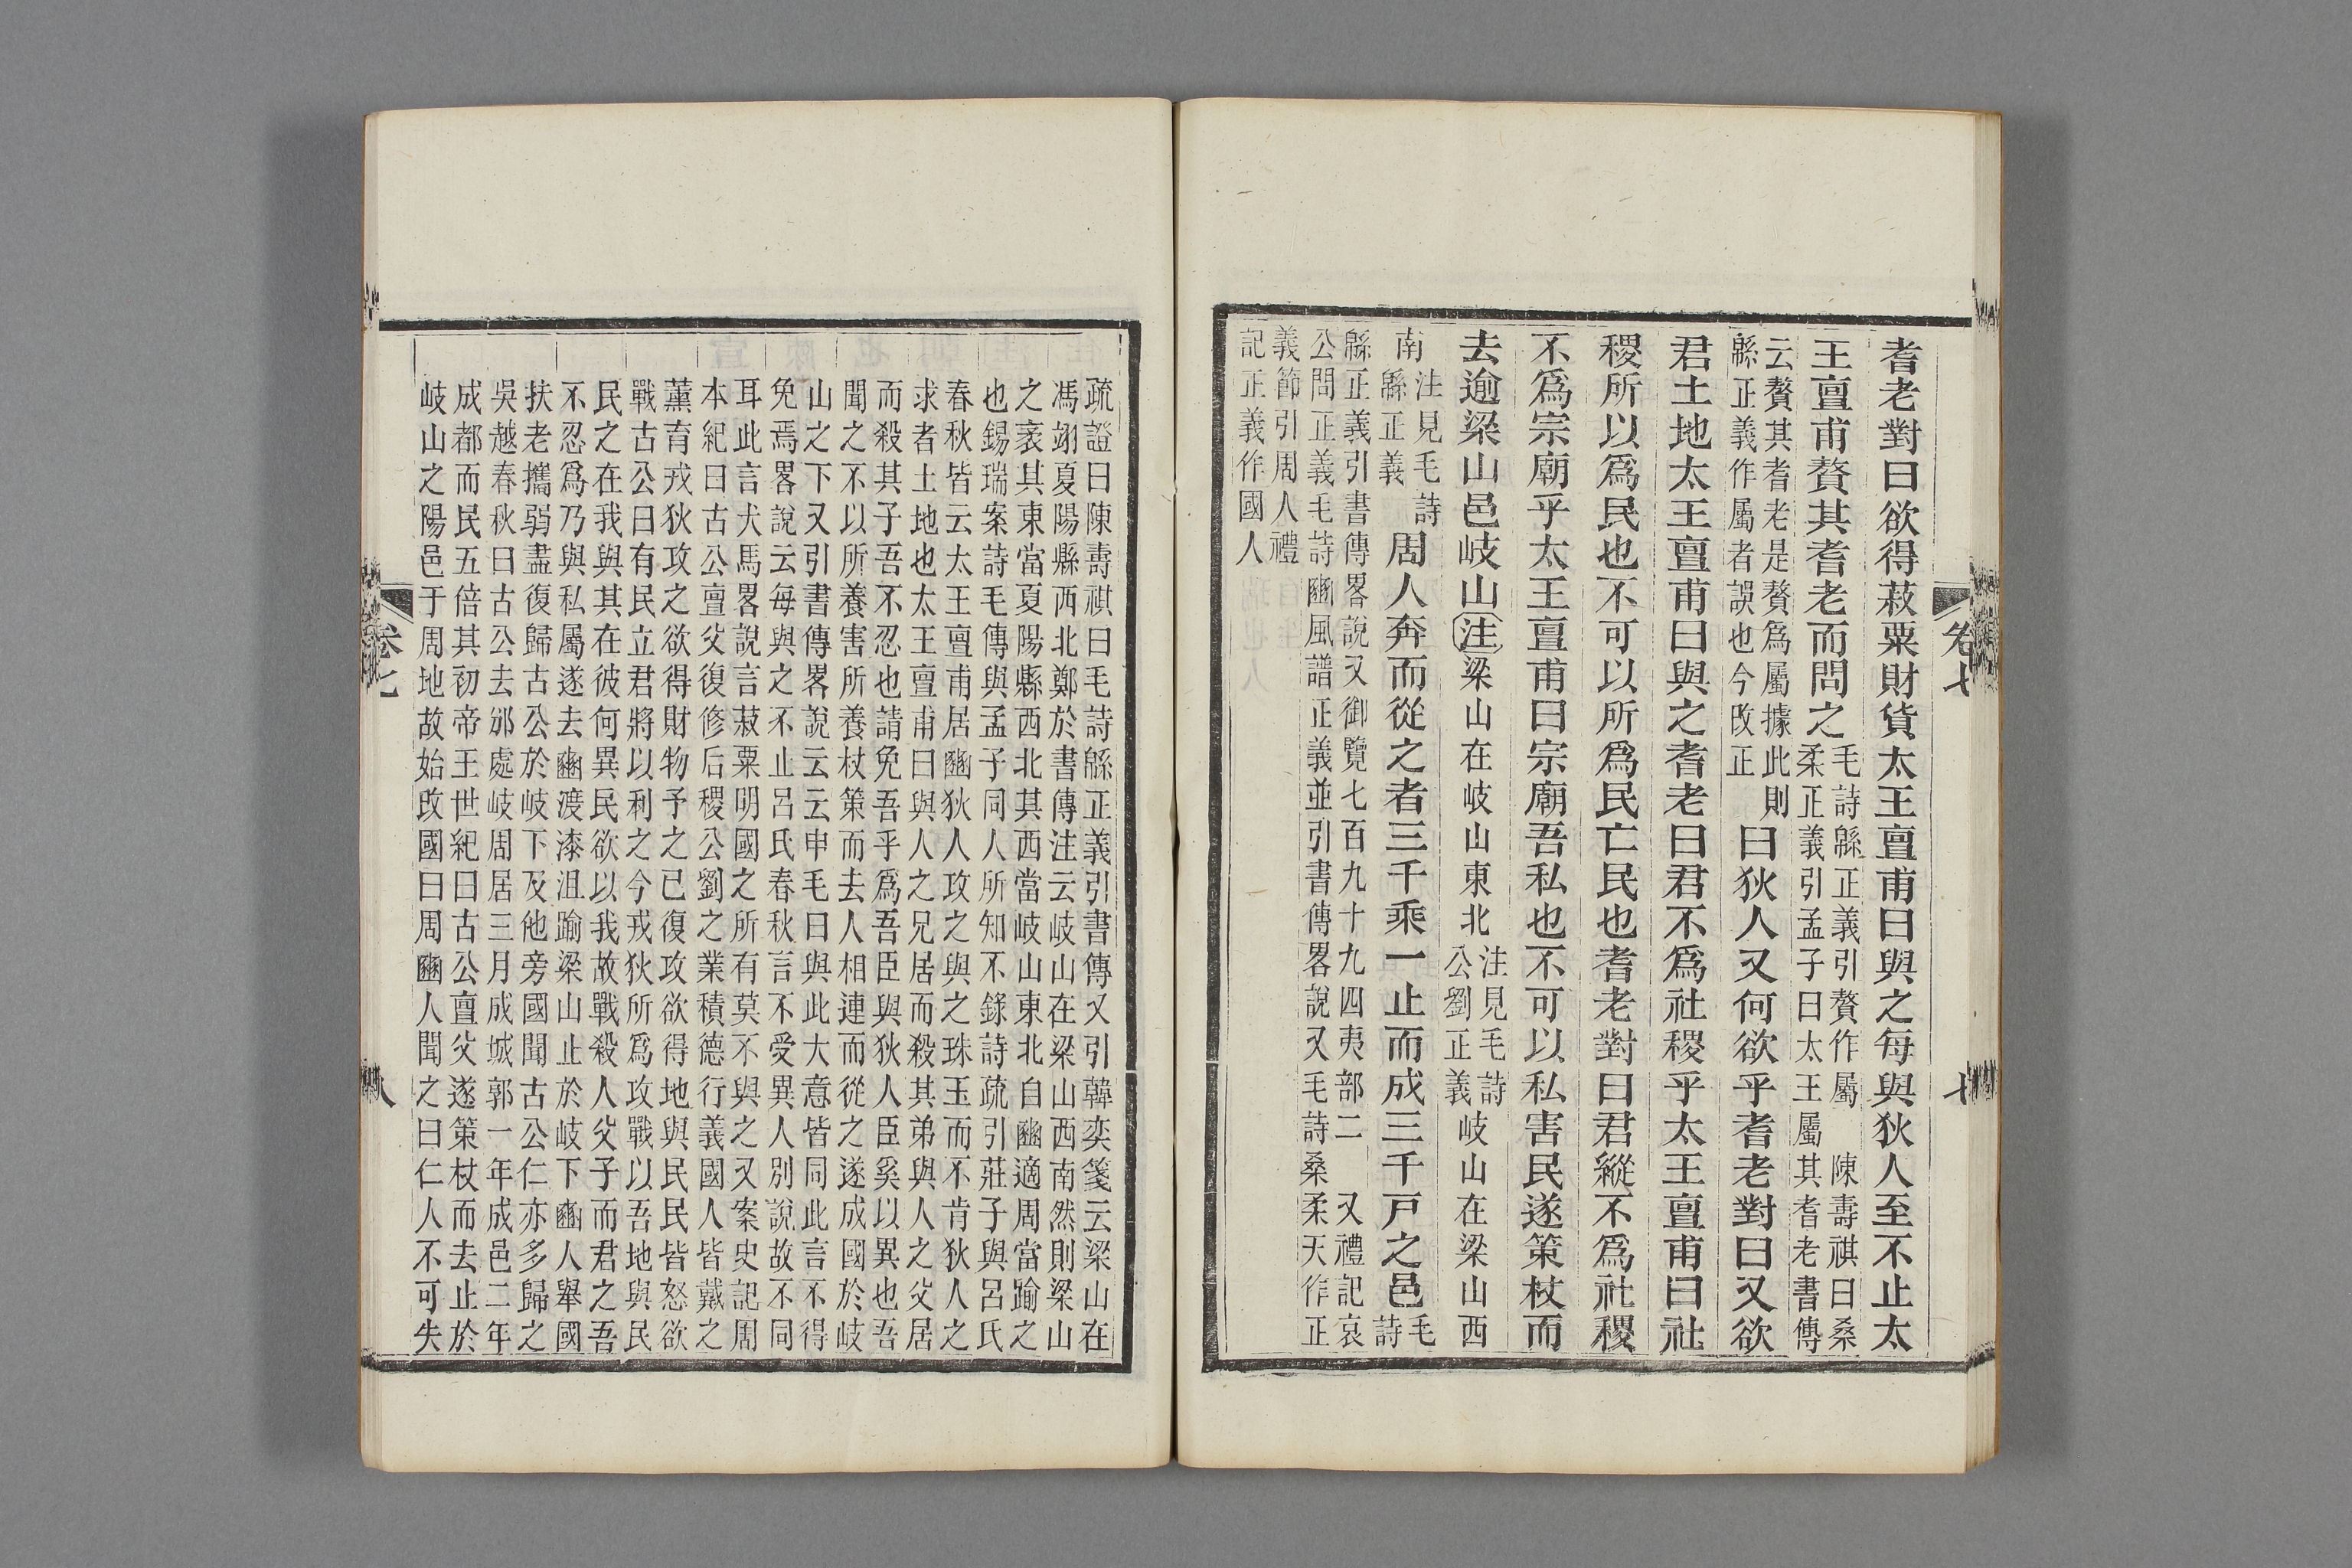 卷七
七
耆老對曰欲得菽粟財貨太王亶甫曰與之每與狄人至不止太
王亶甫贅其耆老而問之
毛詩緜正義引贅作屬　陳壽祺曰桑
柔正義引孟子曰太王屬其耆老書傳
云贅其耆老是贅爲屬據此則
緜正義作屬者誤也今攺正
曰狄人又何欲乎耆老對曰又欲
君土地太王亶甫曰與之耆老曰君不爲社稷乎太王亶甫曰社
稷所以爲民也不可以所爲民亡民也耆老對曰君縱不爲社稷
不爲宗廟乎太王亶甫曰宗廟吾私也不可以私害民遂策杖而
去逾梁山邑岐山注梁山在岐山東北
注見毛詩
公劉正義
岐山在梁山西
南
注見毛詩
緜正義
周人奔而從之者三千乘一止而成三千戶之邑
毛
詩
緜正義引書傳畧說又御覽七百九十九四夷部二　又禮記哀
公問正義毛詩豳風譜正義並引書傳畧說又毛詩桑柔天作正
義節引周人禮
記正義作國人
疏證曰陳壽祺曰毛詩緜正義引書傳又引韓奕箋云梁山在
馮翊夏陽縣西北鄭於書傳注云岐山在梁山西南然則梁山
之袤其東當夏陽縣西北其西當岐山東北自豳適周當踰之
也錫瑞案詩毛傳與孟子同人所知不錄詩疏引莊子與呂氏
春秋皆云太王亶甫居豳狄人攻之與之珠玉而不肯狄人之
求者土地也太王亶甫曰與人之兄居而殺其弟與人之父居
而殺其子吾不忍也請免吾乎爲吾臣與狄人臣奚以異也吾
聞之不以所養害所養杖策而去人相連而從之遂成國於岐
山之下又引書傳畧說云云申毛曰與此大意皆同此言不得
免焉畧說云每與之不止呂氏春秋言不愛異人別說故不同
耳此言犬馬畧說言菽粟明國之所有莫不與之又案史記周
本紀曰古公亶父復修后稷公劉之業積德行義國人皆戴之
薰育戎狄攻之欲得財物予之已復攻欲得地與民民皆怒欲
戰古公曰有民立君將以利之今戎狄所爲攻戰以吾地與民
民之在我與其在彼何異民欲以我故戰殺人父子而君之吾
不忍爲乃與私屬遂去豳渡漆沮踰梁山止於岐下豳人舉國
扶老攜弱盡復歸古公於岐下及他旁國聞古公仁亦多歸之
吳越春秋曰古公去邠處岐周居三月成城郭一年成邑二年
成都而民五倍其初帝王世紀曰古公亶父遂策杖而去止於
岐山之陽邑于周地故始攺國曰周豳人聞之曰仁人不可失
卷七
八